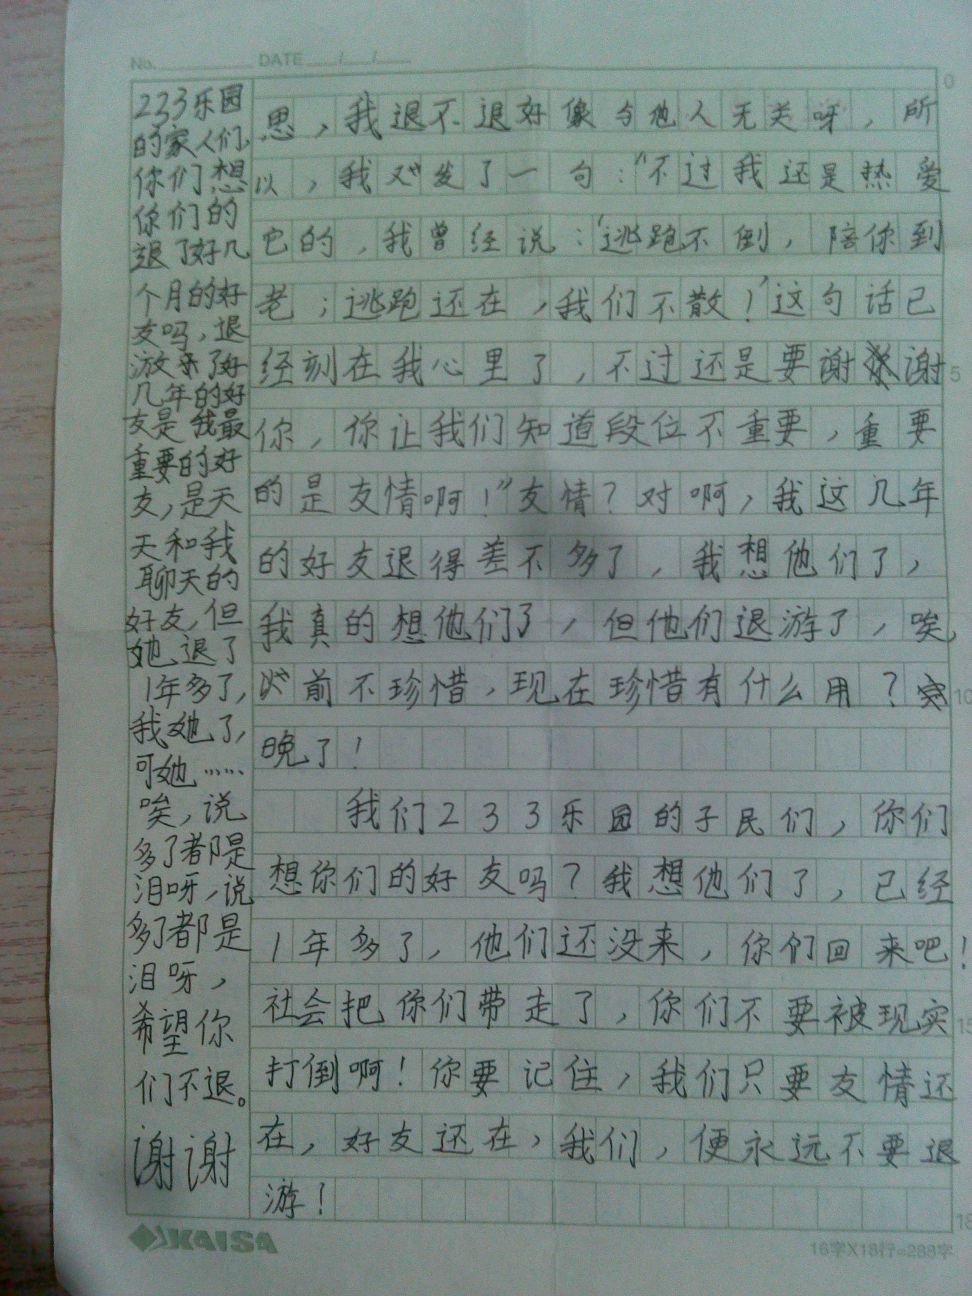 No. DATE / /
233乐园
的家人们,
你们想
你们的
退了好几
个月的好
友吗，退
游了好
几年的好
友是我最
重要的好
友，是天
天和我
聊天的
好友，但
她退了
1年多了，
我她了，
可她……
唉，说
多了都是
泪呀，说
多了都是
泪呀，
希望你
们不退。
谢谢
思，我退不退好像与他人无关呀，所
以，我又发了一句：“不过我还是热爱
它的，我曾经说：‘逃跑不倒，陪你到
老；逃跑还在，我们不散！’这句话已
经刻在我心里了，不过还是要谢谢
你，你让我们知道段位不重要，重要
的是友情啊！”友情？对啊，我这几年
的好友退得差不多了，我想他们了，
我真的想他们了，但他们退游了，唉，
以前不珍惜，现在珍惜有什么用？
晚了！
我们233乐园的子民们，你们
想你们的好友吗？我想他们了，已经
1年多了，他们还没来，你们回来吧！
社会把你们带走了，你们不要被现实
打倒啊！你要记住，我们只要友情还
在，好友还在，我们，便永远不要退
游！
0
5
10
15
18
KAISA
16字X18行=288字